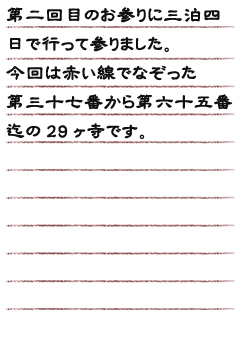 第二回目のお参りに三泊四
日で行って参りました。
今回は赤い線でなぞった
第三十七番から第六十五番
迄の29ヶ寺です。